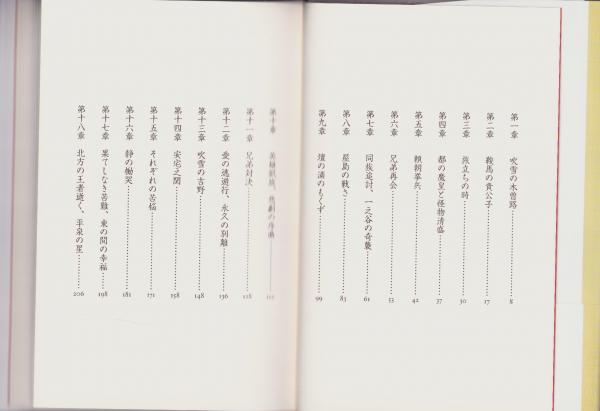 第一章 吹雪の木曽路 8
第二章 鞍馬の貴公子 17
第三章 旅立ちの時 30
第四章 都の魔皇と怪物清盛 37
第五章 頼朝挙兵 42
第六章 兄弟再会 53
第七章 同族追討、一之谷の奇襲 61
第八章 屋島の戦さ 83
第九章 壇の浦のもくず 99
第十章 英雄凱旋、悲劇の序曲
第十一章 兄弟対決
第十二章 愛の逃避行、永久の別離 136
第十三章 吹雪の吉野 148
第十四章 安宅之関 158
第十五章 それぞれの苦悩 171
第十六章 静の慟哭 181
第十七章 果てしなき苦難、束の間の幸福 198
第十八章 北方の王者逝く、平泉の星 206